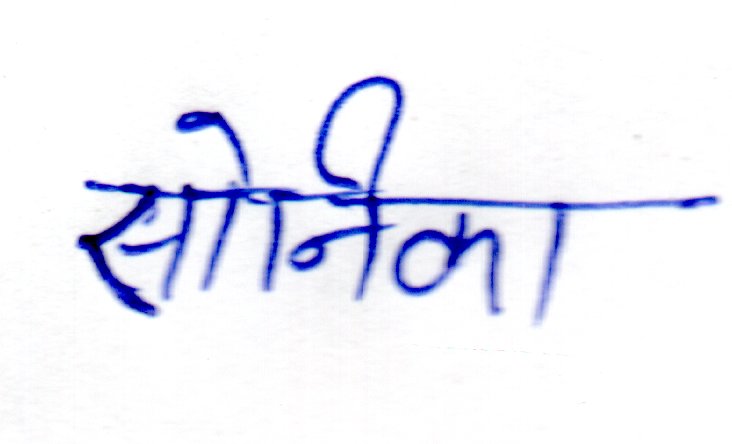 सोनिका